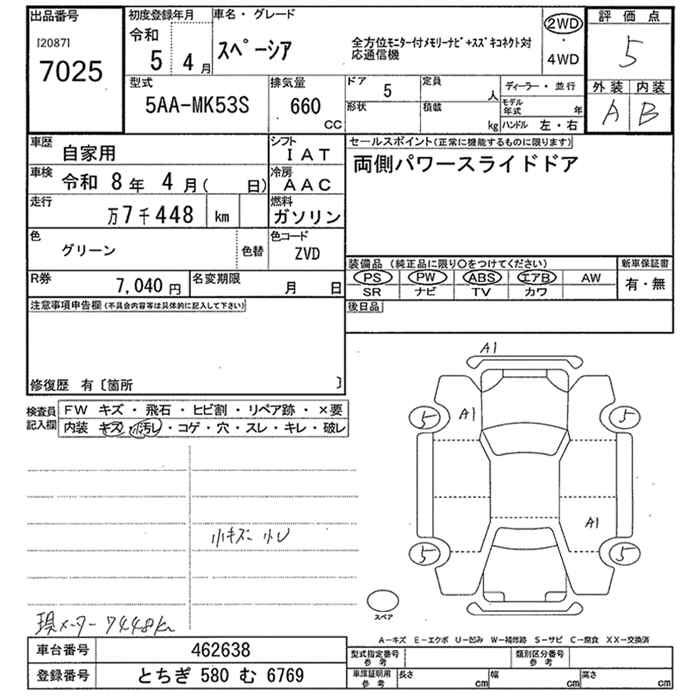 出品番号 初度登録年月 車名・グレード 2WD ・ 4WD 評価点
[2087] 7025 令和 5 4月 スペーシア 全方位モニター付メモリーナビ+スズキコネクト対応通信機 5
型式 排気量 ドア 5 定員 人 ディーラー・並行 外装 内装
5AA-MK53S 660 CC 形状 積載 kg モデル年式 年 A B
ハンドル 左・右
車歴 自家用 シフト IAT セールスポイント(正常に機能するものに限ります)
車検 令和 8年 4月( 日) 冷房 AAC 両側パワースライドドア
走行 万7千448 km 燃料 ガソリン
色 グリーン 色替 色コード ZVD
装備品 (純正品に限り〇をつけてください) 新車保証書
R券 7,040円 名変期限 月 日 PS PW ABS エアB AW 有・無
SR ナビ TV カワ
注意事項申告欄(不具合内容等は具体的に記入して下さい) 後日品
修復歴 有〔箇所 〕
検査員記入欄 FW キズ・飛石・ヒビ割・リペア跡・×要
内装 キズ・汚レ・コゲ・穴・スレ・キレ・破レ
A1
5 A1 5
A1
小キズ 小ヨレ
5 5
スペア
現メーター 7448km
A―キズ E―エクボ U―凹み W―補修跡 S―サビ C―腐食 XX―交換済
車台番号 462638 型式指定番号 参考 類別区分番号 参考
登録番号 とちぎ 580 む 6769 車庫証明用 参考 長さ cm 幅 cm 高さ cm